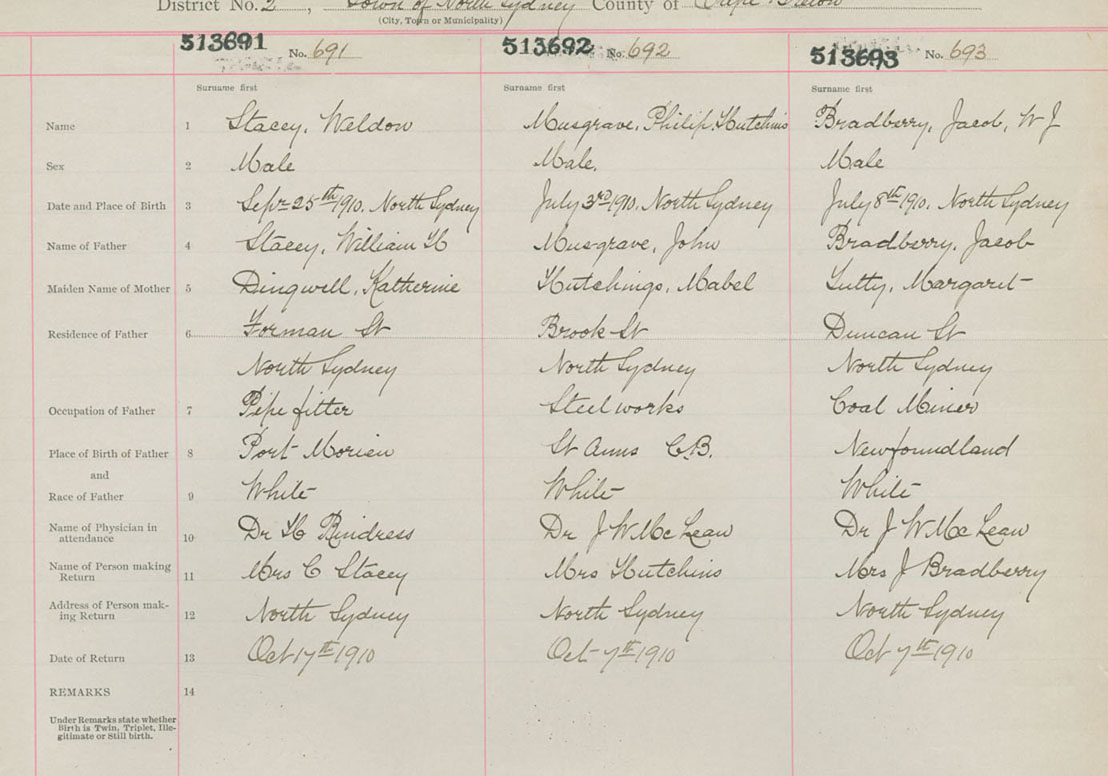 District No. 2, Town of North Sydney County of Cape Breton
(City, Town or Municipality)
513691 No. 691 513692 No. 692 513693 No. 693
Surname first Surname first Surname first
Name 1 Stacey, Weldon Musgrave, Philip, Hutchins Bradberry, Jacob, W J
Sex 2 Male Male. Male
Date and Place of Birth 3 Sepr 25th 1910. North Sydney July 3rd 1910. North Sydney July 8th 1910. North Sydney
Name of Father 4 Stacey, William H Musgrave, John Bradberry, Jacob
Maiden Name of Mother 5 Dingwell, Katherine Hutchings, Mabel Tutty, Margaret
Residence of Father 6 Forman St Brook St Duncan St
North Sydney North Sydney North Sydney
Occupation of Father 7 Pipe fitter Steel works Coal Miner
Place of Birth of Father 8 Port Morien St Anns C.B. Newfoundland
and
Race of Father 9 White White White
Name of Physician in
attendance 10 Dr H Rindress Dr J W McLean Dr J W McLean
Name of Person making
Return 11 Mrs C Stacey Mrs Hutchins Mrs J Bradberry
Address of Person mak-
ing Return 12 North Sydney North Sydney North Sydney
Date of Return 13 Oct 17th 1910 Oct 7th 1910 Oct 7th 1910
REMARKS 14
Under Remarks state whether
Birth is Twin, Triplet, Ille-
gitimate or Still birth.